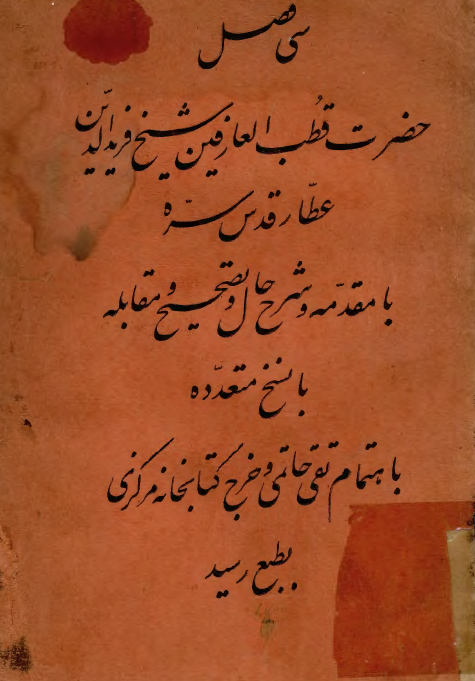 سی فصل
حضرت قُطب العارفین شیخ فریدالدین
عطّار قدس سرّه
با مقدّمه و شرح حال و تصحیح و مقابله
با نسخ متعدّده
باهتمام تقی حاتمی و خرج کتابخانه مرکزی
بطبع رسید